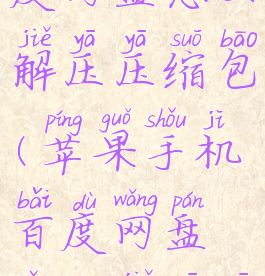 jiě yā yā suō bāo
解压压缩包
píng guǒ shǒu jī
(苹果手机
bǎi dù wǎng pán
百度网盘